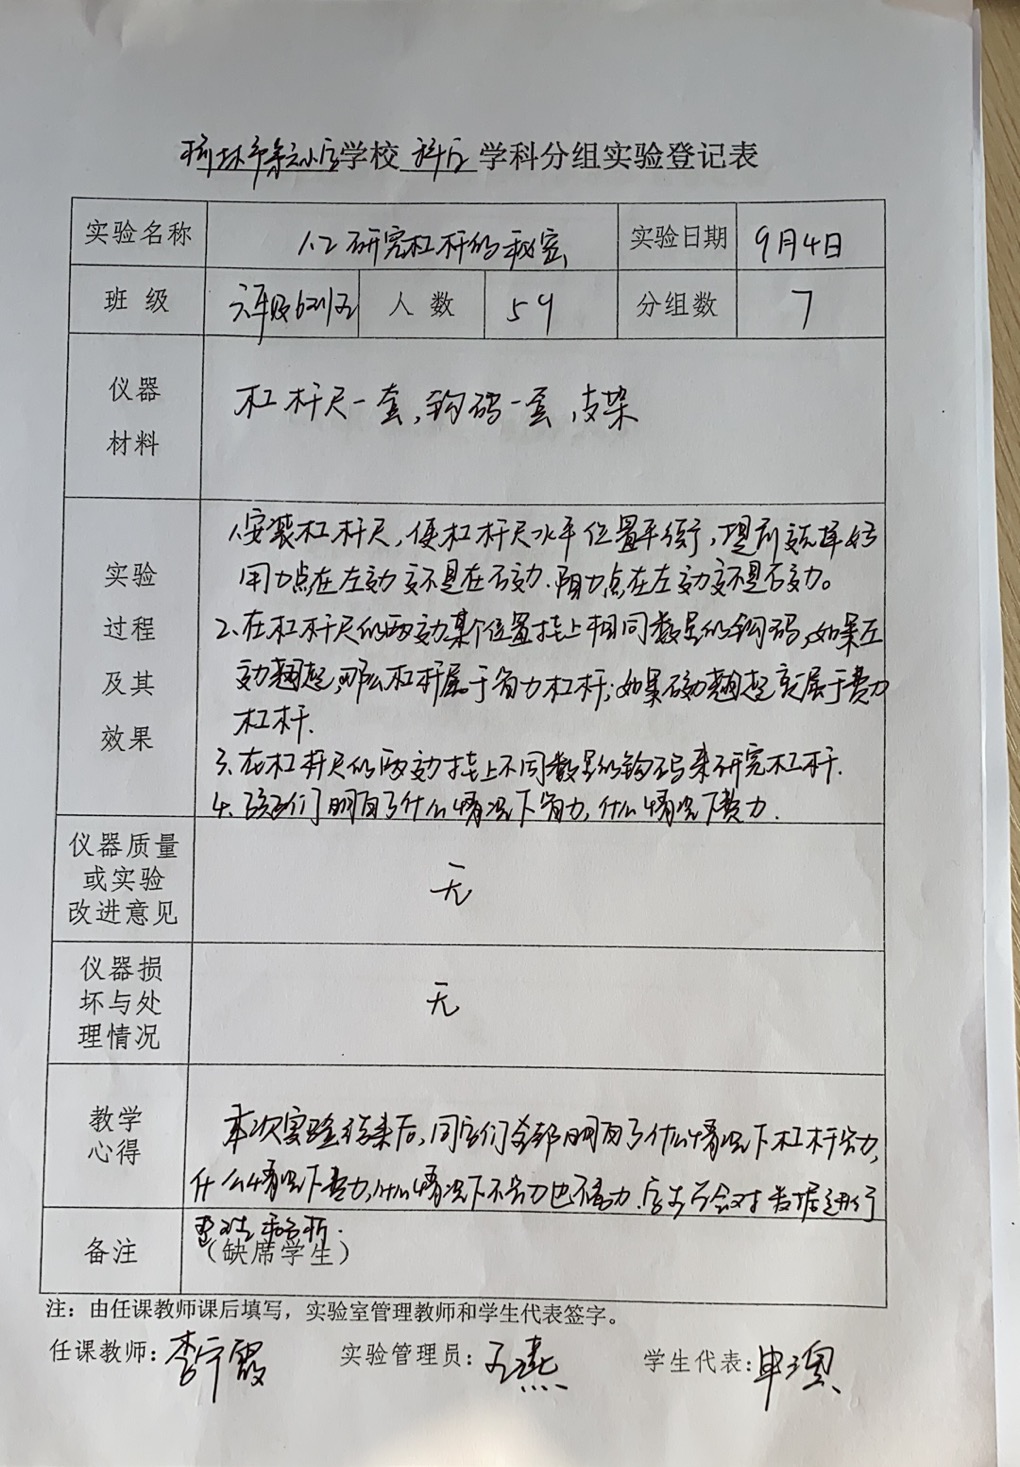 榆林市第六小学学校 科学 学科分组实验登记表
实验名称 1.2研究杠杆的秘密 实验日期 9月4日
班 级 六年级 人 数 59 分组数 7
仪器
材料
杠杆尺一套,钩码一套,支架
实验
过程
及其
效果
1.安装杠杆尺,使杠杆尺水平位置平衡,提前选择好
用力点在左边还是在右边.阻力点在左边还是右边。
2.在杠杆尺的两边某个位置挂上相同数量的钩码,如果左
边翘起,那么杠杆属于省力杠杆;如果右边翘起就属于费力
杠杆.
3.在杠杆尺的两边挂上不同数量的钩码来研究杠杆.
4.孩子们明白了什么情况下省力,什么情况下费力.
仪器质量
或实验
改进意见
无
仪器损
坏与处
理情况
无
教学
心得
本次实验结束后,同学们全部明白了什么情况下杠杆省力,
什么情况下费力,什么情况下不省力也不费力.学生会对数据进行
整理和分析.
备注
(缺席学生)
注:由任课教师课后填写,实验室管理教师和学生代表签字。
任课教师:李宁霞 实验管理员:王燕 学生代表:申